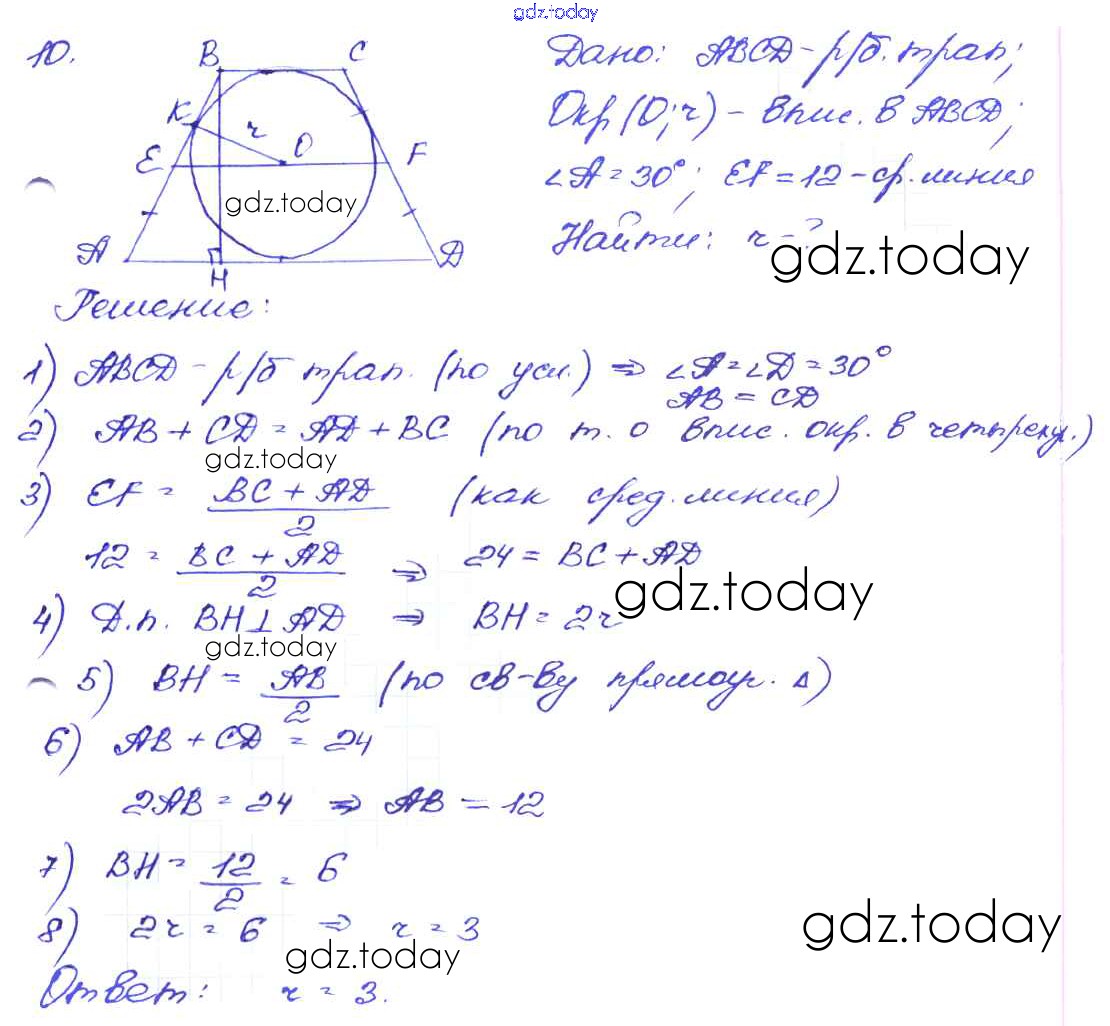 gdz.today
10.
B C
K
r
O
E F
gdz.today
A H D
Дано: ABCD - р/б. трап;
Окр(O; r) - впис. в ABCD;
∠A = 30°; EF = 12 - ср. линия
Найти: r - ?
gdz.today
Решение:
1) ABCD - р/б трап. (по усл.) ⇒ ∠A = ∠D = 30°
AB = CD
2) AB + CD = AD + BC (по т. о впис. окр. в четырехуг.)
gdz.today
3) EF = (BC + AD)/2 (как сред. линия)
12 = (BC + AD)/2 ⇒ 24 = BC + AD
gdz.today
4) Д.п. BH ⊥ AD ⇒ BH = 2r
gdz.today
5) BH = AB/2 (по св-ву прямоуг. Δ)
6) AB + CD = 24
2AB = 24 ⇒ AB = 12
7) BH = 12/2 = 6
8) 2r = 6 ⇒ r = 3
gdz.today
gdz.today
Ответ: r = 3.